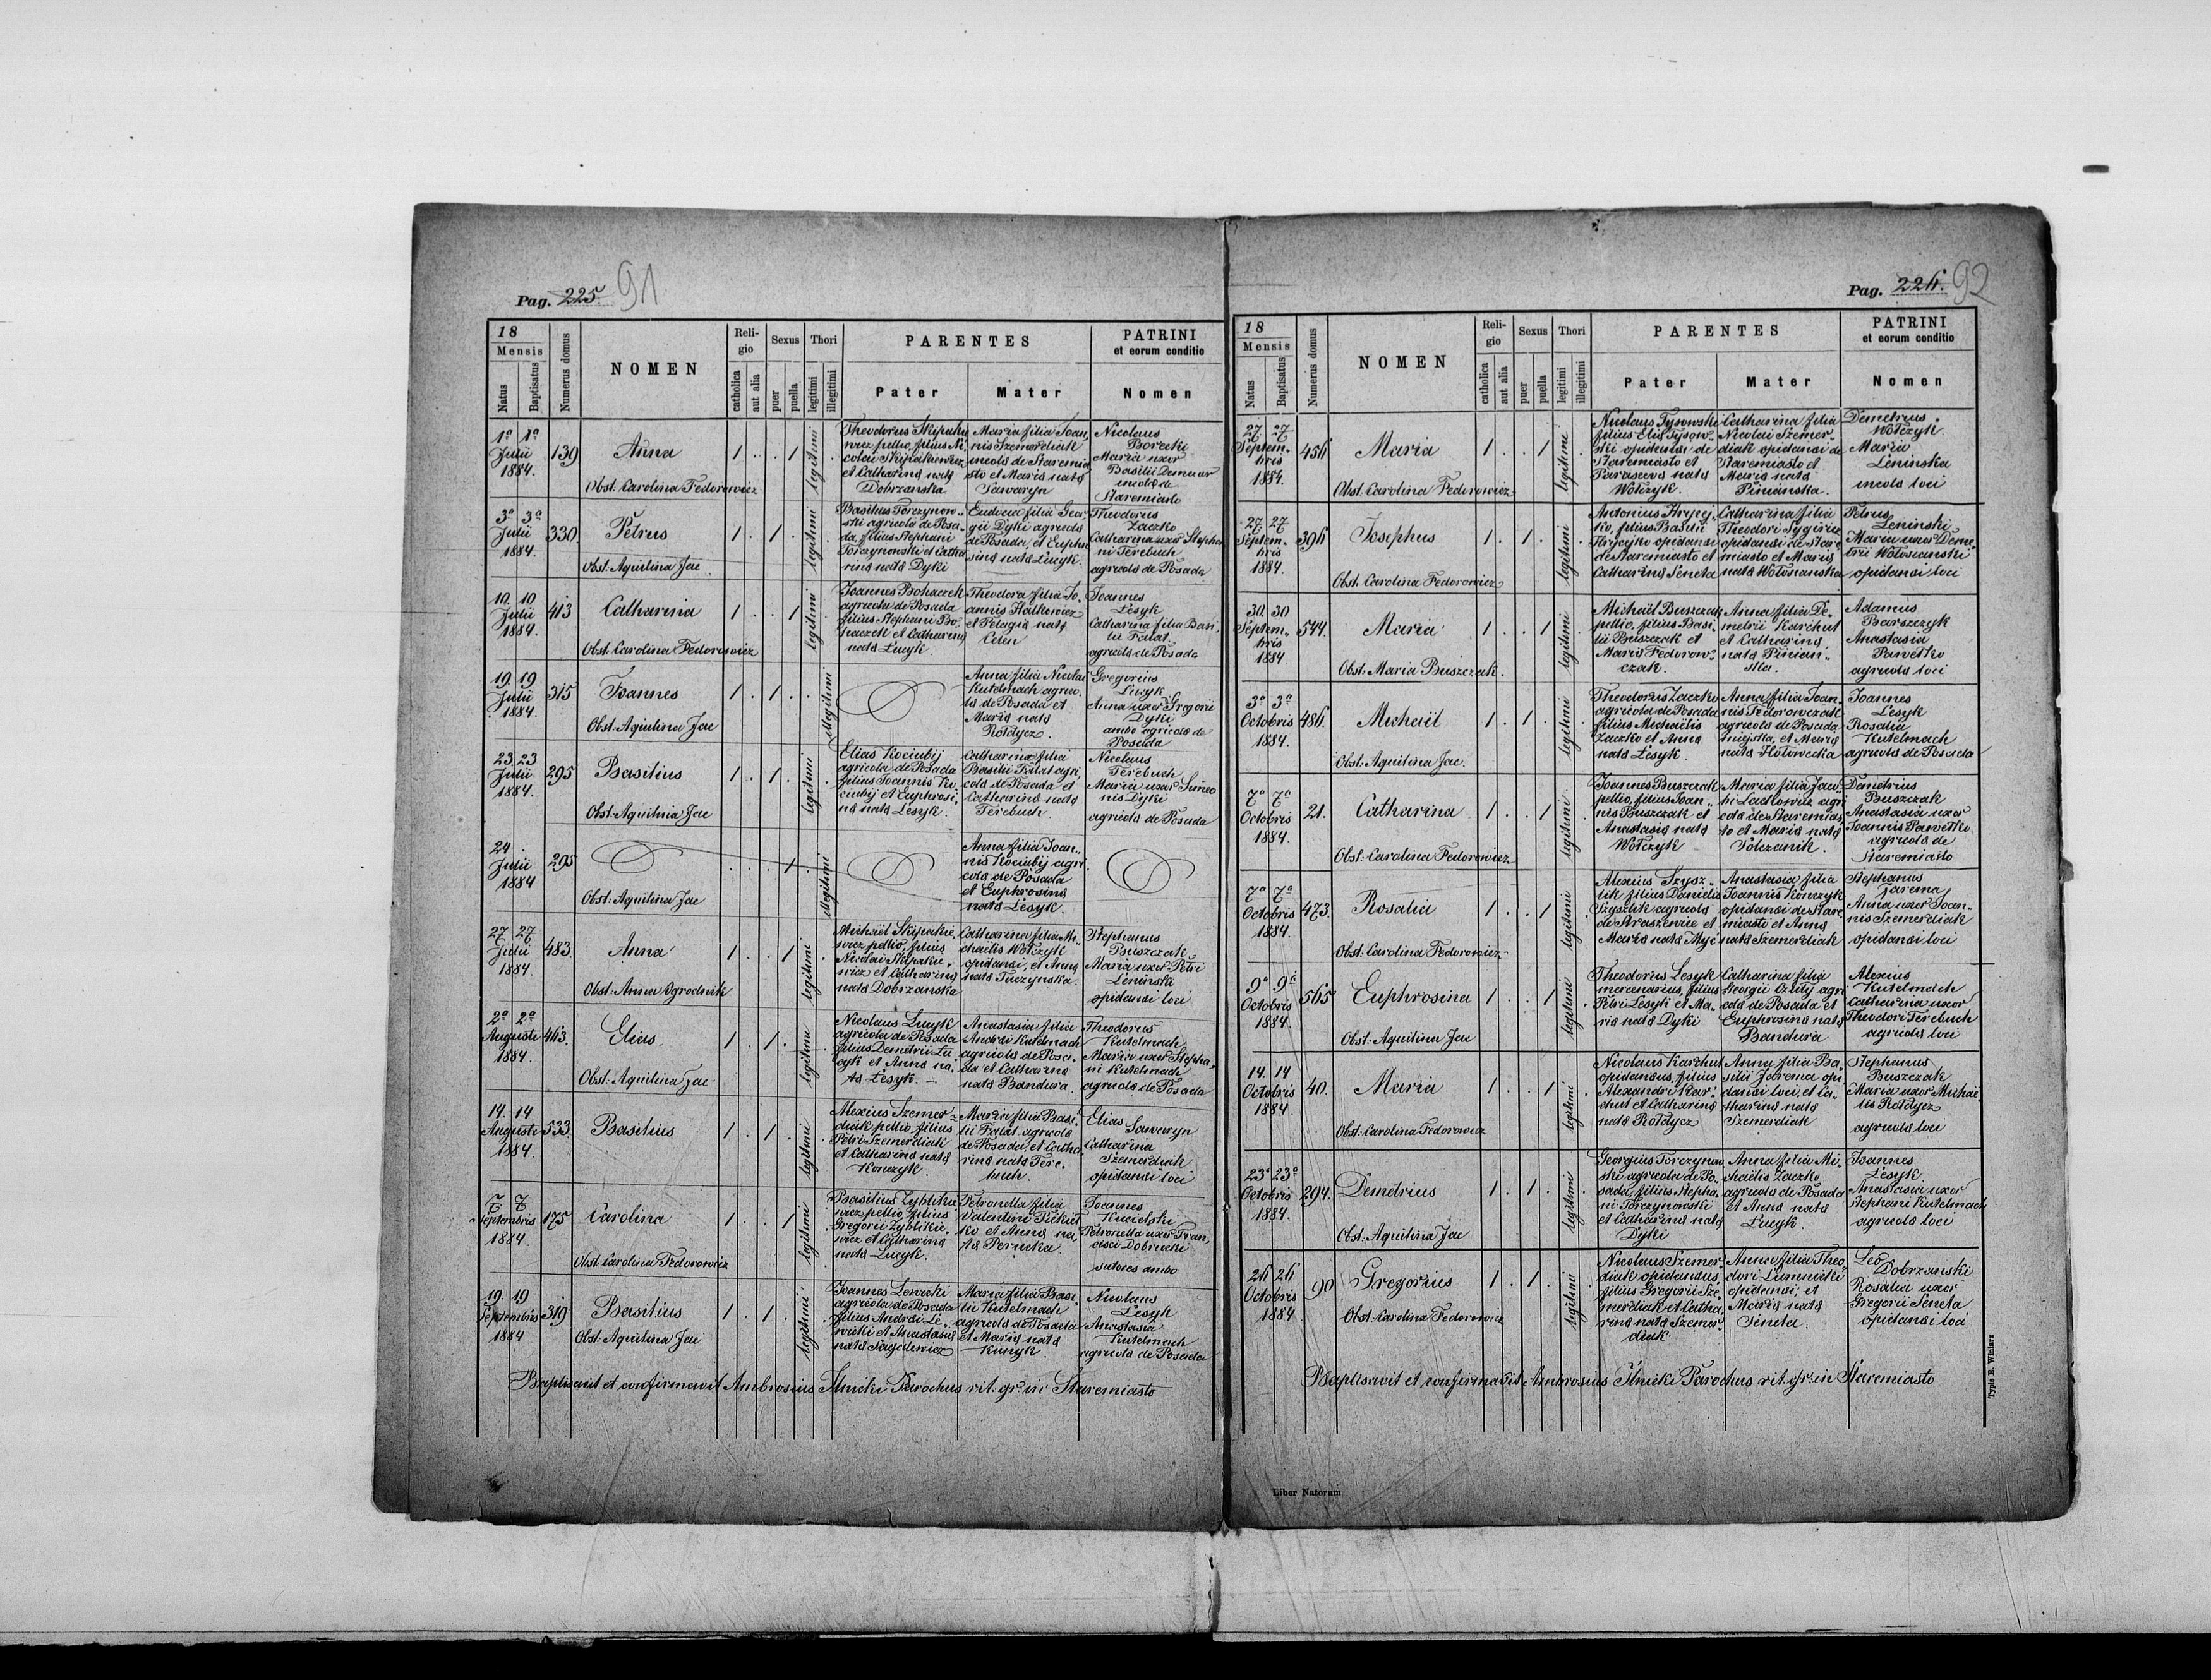 Pag. 225. 91
18
Mensis
Natus
Baptisatus
Numerus domus
NOMEN
Religio
catholica
aut alia
Sexus
puer
puella
Thori
legitimi
illegitimi
PARENTES
Pater
Mater
PATRINI
et eorum conditio
Nomen
1ª 1ª
Julii
1884.
139
Anna
Obst. Carolina Fedorowicz
1 . . 1
legitimi
Theodorus Skipakie
wicz pellio, filius Ni
colai Skipakiewicz
et Catharina nata
Dobrzanska
Maria filia Joan,
nis Szemerdiak
incola de Staremia
sto et Maria nata
Sawaryn
Nicolaus
Borecki
Maria uxor
Basilii Demeur
incola de
Staremiasto
3ª 3ª
Julii
1884.
330
Petrus
Obst. Aquilina Jac
1 . 1 .
legitimi
Basilius Torczynow-
ski agricola de Posa-
da, filius Stephani
Torczynowski et Catha
rina nata Dyki
Eudocia filia Geor
gii Dyki agricola
de Posada, et Euphro
sina nata Lucyk.
Theodorus
Zaczko
Catharina uxor Stepha
ni Terebuch
agricola de Posada
10. 10
Julii
1884.
413
Catharina
Obst. Carolina Fedorowicz
1 . . 1
legitimi
Joannes Bohaczek
agricola de Posada
filius Stephani Bo
haczek et Catharina
nata Lucyk
Theodora filia Jo
annis Halkowicz
et Pelagia nata
Joannes
Lesyk
Catharina filia Basi
lii Falat
agricola de Posada
19. 19
Julii
1884.
315
Joannes
Obst. Aquilina Jac
1 . 1 .
illegitimi
Anna filia Nicolai
Kutelmach agrico
la de Posada et
Maria nata
Roldycz.
Gregorius
Lucyk
Anna uxor Gregorii
Dyki
ambo agricola de
Posada
23. 23
Julii
1884.
295
Basilius
Obst. Aquilina Jac
1 . 1 .
legitimi
Elias Kociubij
agricola de Posada
filius Joannis Ko
ciubij et Euphrosi,
na nata Lesyk.
Catharina filia
Basilii Falat agri,
cola de Posada et
Catharina nata
Terebuch.
Nicolaus
Terebuch
Maria uxor Simeo
nis Dyki
agricola de Posada
24
Julii
1884
295
Obst. Aquilina Jac
. . . 1
illegitimi
Anna filia Joan-
nis Kociubij agri
cola de Posada
et Euphrosina
nata Lesyk.
27 27
Julii
1884.
483.
Anna
Obst. Anna Ogrodnik
1 . . 1
legitimi
Michaël Skipakie,
wicz pellio, filius
Nicolai Skipakie-
wicz et Catharina
nata Dobrzanska
Catharina filia Mi-
chaelis Wołczyk
opidansi, et Anna
nata Tuczynska.
Stephanus
Buszczak
Maria uxor Petri
Leninski
opidansi loci
2ª 2ª
Augusti
1884.
463.
Elias
Obst. Aquilina Jac
1 . 1 .
legitimi
Nicolaus Lucyk
agricola de Posada
filius Demetrii Lu
cyk et Anna na,
ta Lesyk.
Anastasia filia
Andrei Kutelmach
agricola de Posa-
da et Catharina
nata Bandura.
Theodorus
Kutelmach
Maria uxor Stepha,
ni Kutelmach
agricola de Posada
14. 14
Augusti
1884.
533.
Basilius
1 . 1 .
legitimi
Alexius Szemer-
diak pellio, filius
Petri Szemerdiak
et Catharina nata
Konczyk.
Maria filia Basi
lii Falat agricola
de Posada, et Catha
rina nata Tere-
buch.
Elias
Sawaryn
Catharina
Szemerdiak
opidansi loci
7 7
Septembris
1884.
175
Carolina
Obst. Carolina Fedorowicz
1 . . 1
legitimi
Basilius Zyblikie
wicz pellio, filius
Gregorii Zyblikie-
wicz et Catharina
nata Lucyk.
Petronella filia
Valentini Pickut
ko et Anna na,
ta Perucka.
Joannes
Kucielski
Petronella uxor Fran,
cisci Dobrucki
sutores ambo
19. 19
Septembris
1884
349
Basilius
Obst. Aquilina Jac
1 . 1 .
legitimi
Joannes Lewicki
agricola de Posada
filius Andrei Le-
wicki et Anastasia
nata Sagalewicz
Maria filia Basi
lii Kutelmach
agricola de Posada
et Maria nata
Kunyk.
Nicolaus
Lesyk
Anastasia
Kutelmach
agricola de Posada
Baptisavit et confirmavit Ambrosius Ilnicki Parochus rit. gr. in Staremiasto
Pag. 226. 92
18
Mensis
Natus
Baptisatus
Numerus domus
NOMEN
Religio
catholica
aut alia
Sexus
puer
puella
Thori
legitimi
illegitimi
PARENTES
Pater
Mater
PATRINI
et eorum conditio
Nomen
27 27
Septem-
bris
1884.
456
Maria
Obst. Carolina Fedorowicz
1 . . 1
legitimi
Nicolaus Tysowski
filius Elia Tysow-
ski opidansi de
Staremiasto et
Parasceva nata
Wołczyk.
Catharina filia
Nicolai Szemer-
diak opidansi de
Staremiasto et
Maria nata
Pinianska.
Demetrius
Wołczyk
Maria
Leninska
incola loci
27 27
Septem-
bris
1884.
396
Josephus
Obst. Carolina Fedorowicz
1 . 1 .
legitimi
Antonius Hrycej-
ko, filius Basilii
Hrycejko opidansi
de Staremiasto et
Catharina Seneta
Catharina filia
Theodori Sygiricz
opidansi de Stare
miasto et Maria
nata Wołosianska
Petrus
Leninski
Maria uxor Deme
trii Wołosianski
opidansi loci
30. 30
Septem-
bris
1884
544.
Maria
Obst. Maria Buszczak.
1 . . 1
legitimi
Michaël Buszczak
pellio, filius Basi-
lii Buszczak et
Maria Fedorow-
czak.
Anna filia De-
metrii Karchut
et Catharina
nata Pinian-
ska.
Adamus
Barszczyk
Anastasia
Pawełko
agricola loci
3ª 3ª
Octobris
1884.
486.
Michaël
Obst. Aquilina Jac.
1 . 1 .
legitimi
Theodorus Zaczko
agricola de Posada
filius Michaelis
Zaczko et Anna
nata Lesyk.
Anna filia Joan-
nis Fedorowczak
agricola de Posada
miejska, et Maria
nata Hołowecka
Joannes
Lesyk
Rosalia
Kutelmach
agricola de Posada
7ª 7ª
Octobris
1884.
21.
Catharina
Obst. Carolina Fedorowicz
1 . . 1
legitimi
Joannes Buszczak
pellio, filius Joan-
nis Buszczak et
Anastasia nata
Wołczyk
Maria filia Jaco
bi Lachowicz agri
cola de Staremias,
to et Maria nata
Demetrius
Buszczak
Anastasia uxor
Joannis Pawełko
agricola de
Staremiasto
7ª 7ª
Octobris
1884.
473.
Rosalia
Obst. Carolina Fedorowicz
1 . . 1
legitimi
Alexius Szysz-
lik filius Danielis
Szyszlik agricola
de Straszewic et
Maria nata Myć
Anastasia filia
Joannis Konczyk
opidansi de Stare,
miasto et Anna
nata Szemerdiak
Stephanus
Jarema
Anna uxor Joan-
nis Szemerdiak
opidansi loci
9ª 9ª
Octobris
1884.
565
Euphrosina
Obst. Aquilina Jac
1 . . 1
legitimi
Theodorus Lesyk
mercenarius, filius
Petri Lesyk et Ma-
ria nata Dyki
Catharina filia
Georgii agri
cola de Posada et
Euphrosina nata
Bandura
Alexius
Kutelmach
Catharina uxor
Theodori Terebuch
agricola loci
14. 14
Octobris
1884
40.
Maria
Obst. Carolina Fedorowicz
1 . . 1
legitimi
Nicolaus Karchut
opidansus, filius
Alexandri Kar-
chut et Catharina
nata Roldycz
Anna filia Ba-
silii Jarema opi
dansi loci, et Ca-
tharina nata
Szemerdiak
Stephanus
Buszczak
Maria uxor Michaë
lis Roldycz
agricola loci
23ª 23ª
Octobris
1884.
294.
Demetrius
Obst. Aquilina Jac
1 . 1 .
legitimi
Georgius Torczynow
ski agricola de Po-
sada, filius Stepha-
ni Torczynowski
et Catharina nata
Dyki
Anna filia Mi-
chaelis Zaczko
agricola de Posada
et Anna nata
Lucyk.
Joannes
Lesyk
Anastasia uxor
Stephani Kutelmach
agricola loci
26 26
Octobris
1884
90
Gregorius
Obst. Carolina Fedorowicz
1 . 1 .
legitimi
Nicolaus Szemer-
diak opidansus,
filius Gregorii Sze-
merdiak et Catha,
rina nata Szemer-
diak
Anna filia Theo
dori Lumnicki
opidansi, et
Maria nata
Seneta.
Leo
Dobrzanski
Rosalia uxor
Gregorii Seneta
opidansi loci
Baptisavit et confirmavit Ambrosius Ilnicki Parochus rit. gr. in Staremiasto
Typis E. Winiarz
Liber Natorum